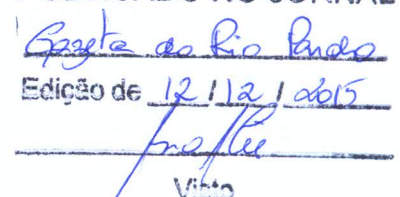 Gazeta do Rio Pardo
Edição de 12 / 12 / 2015
Visto